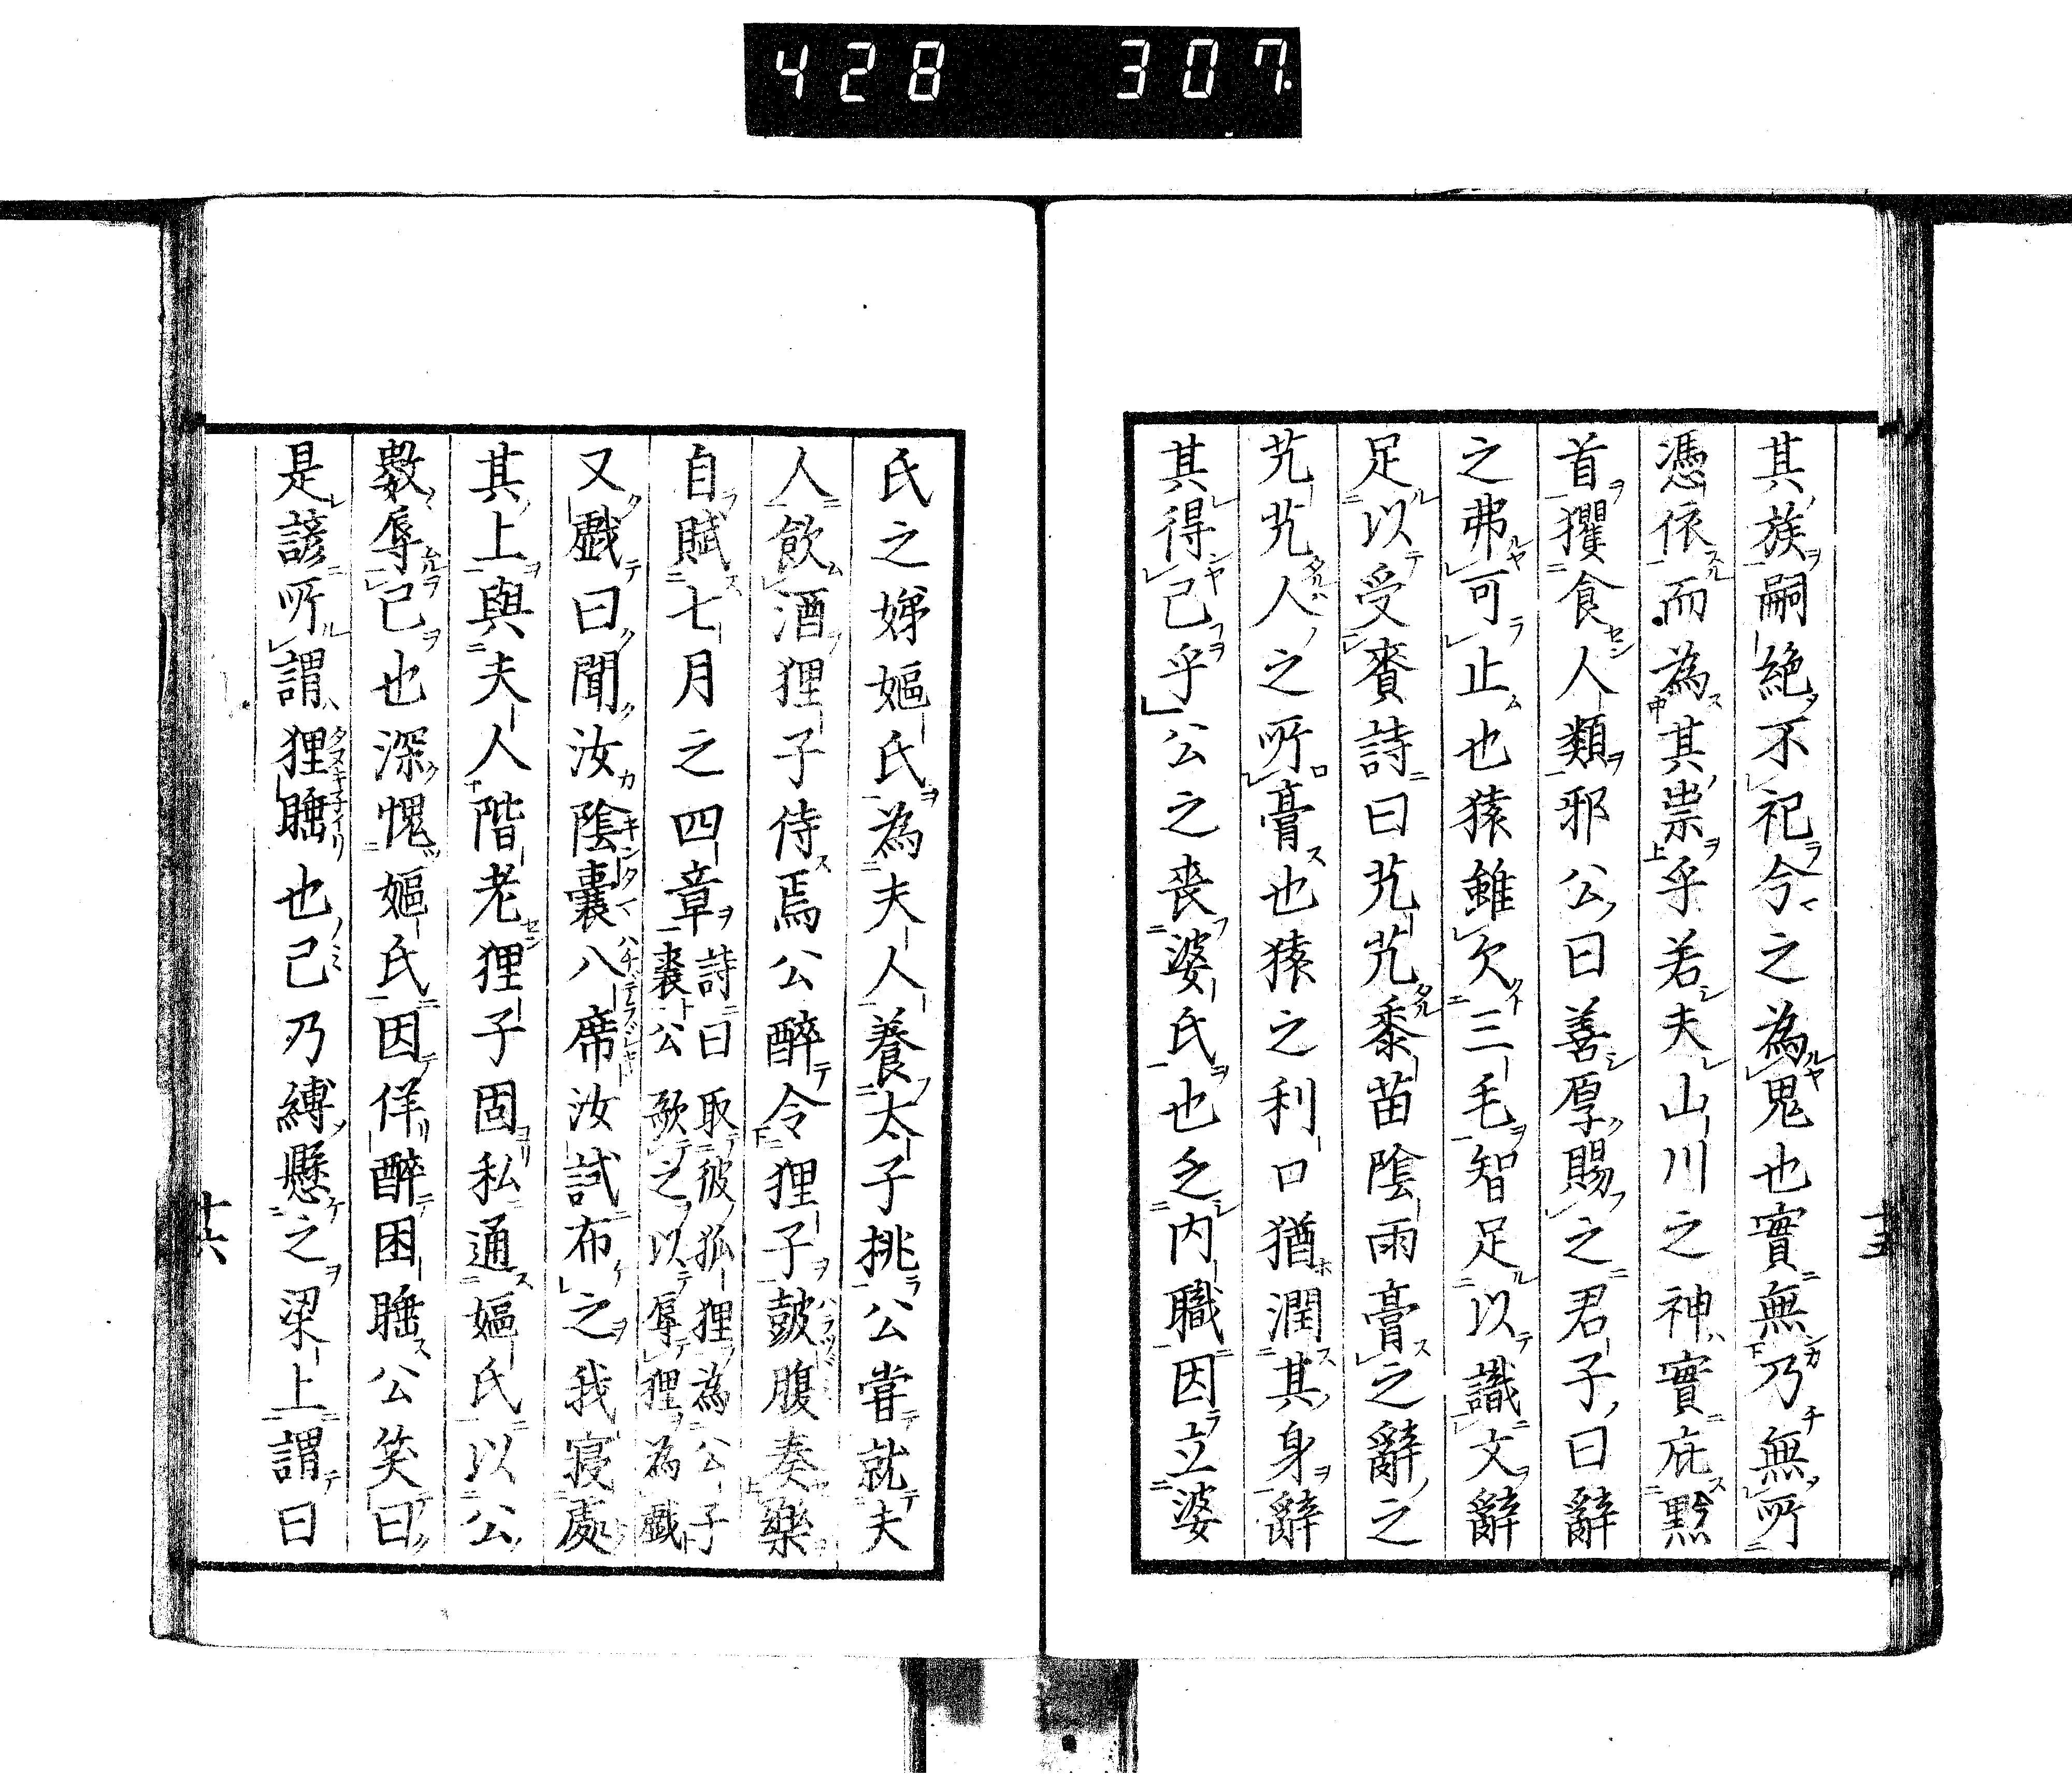 428 307
其族嗣絶不祀令之為鬼也實無乃無所
憑依而為其祟乎若夫山川之神實庇黔
首玃食人類邪公曰善厚賜之君子曰辭
之弗可止也猿雖欠三毛智足以識文辭
足以受賚詩曰芃芃黍苗陰雨膏之辭之
芃芃人之所膏也猿之利口猶潤其身辭
其得已乎公之喪婆氏也乏内職因立婆
十五
氏之娣嫗氏為夫人養太子挑公嘗就夫
人飲酒狸子侍焉公醉令狸子鼓腹奏樂
自賦七月之四章詩曰取彼狐狸為公子裘公欲之以辱狸為戲
又戲曰聞汝陰囊八席汝試布之我寢處
其上與夫人階老狸子固私通嫗氏以公
數辱己也深愧嫗氏因佯醉困睡公笑曰
是諺所謂狸睡也已乃縛懸之梁上謂曰
十六